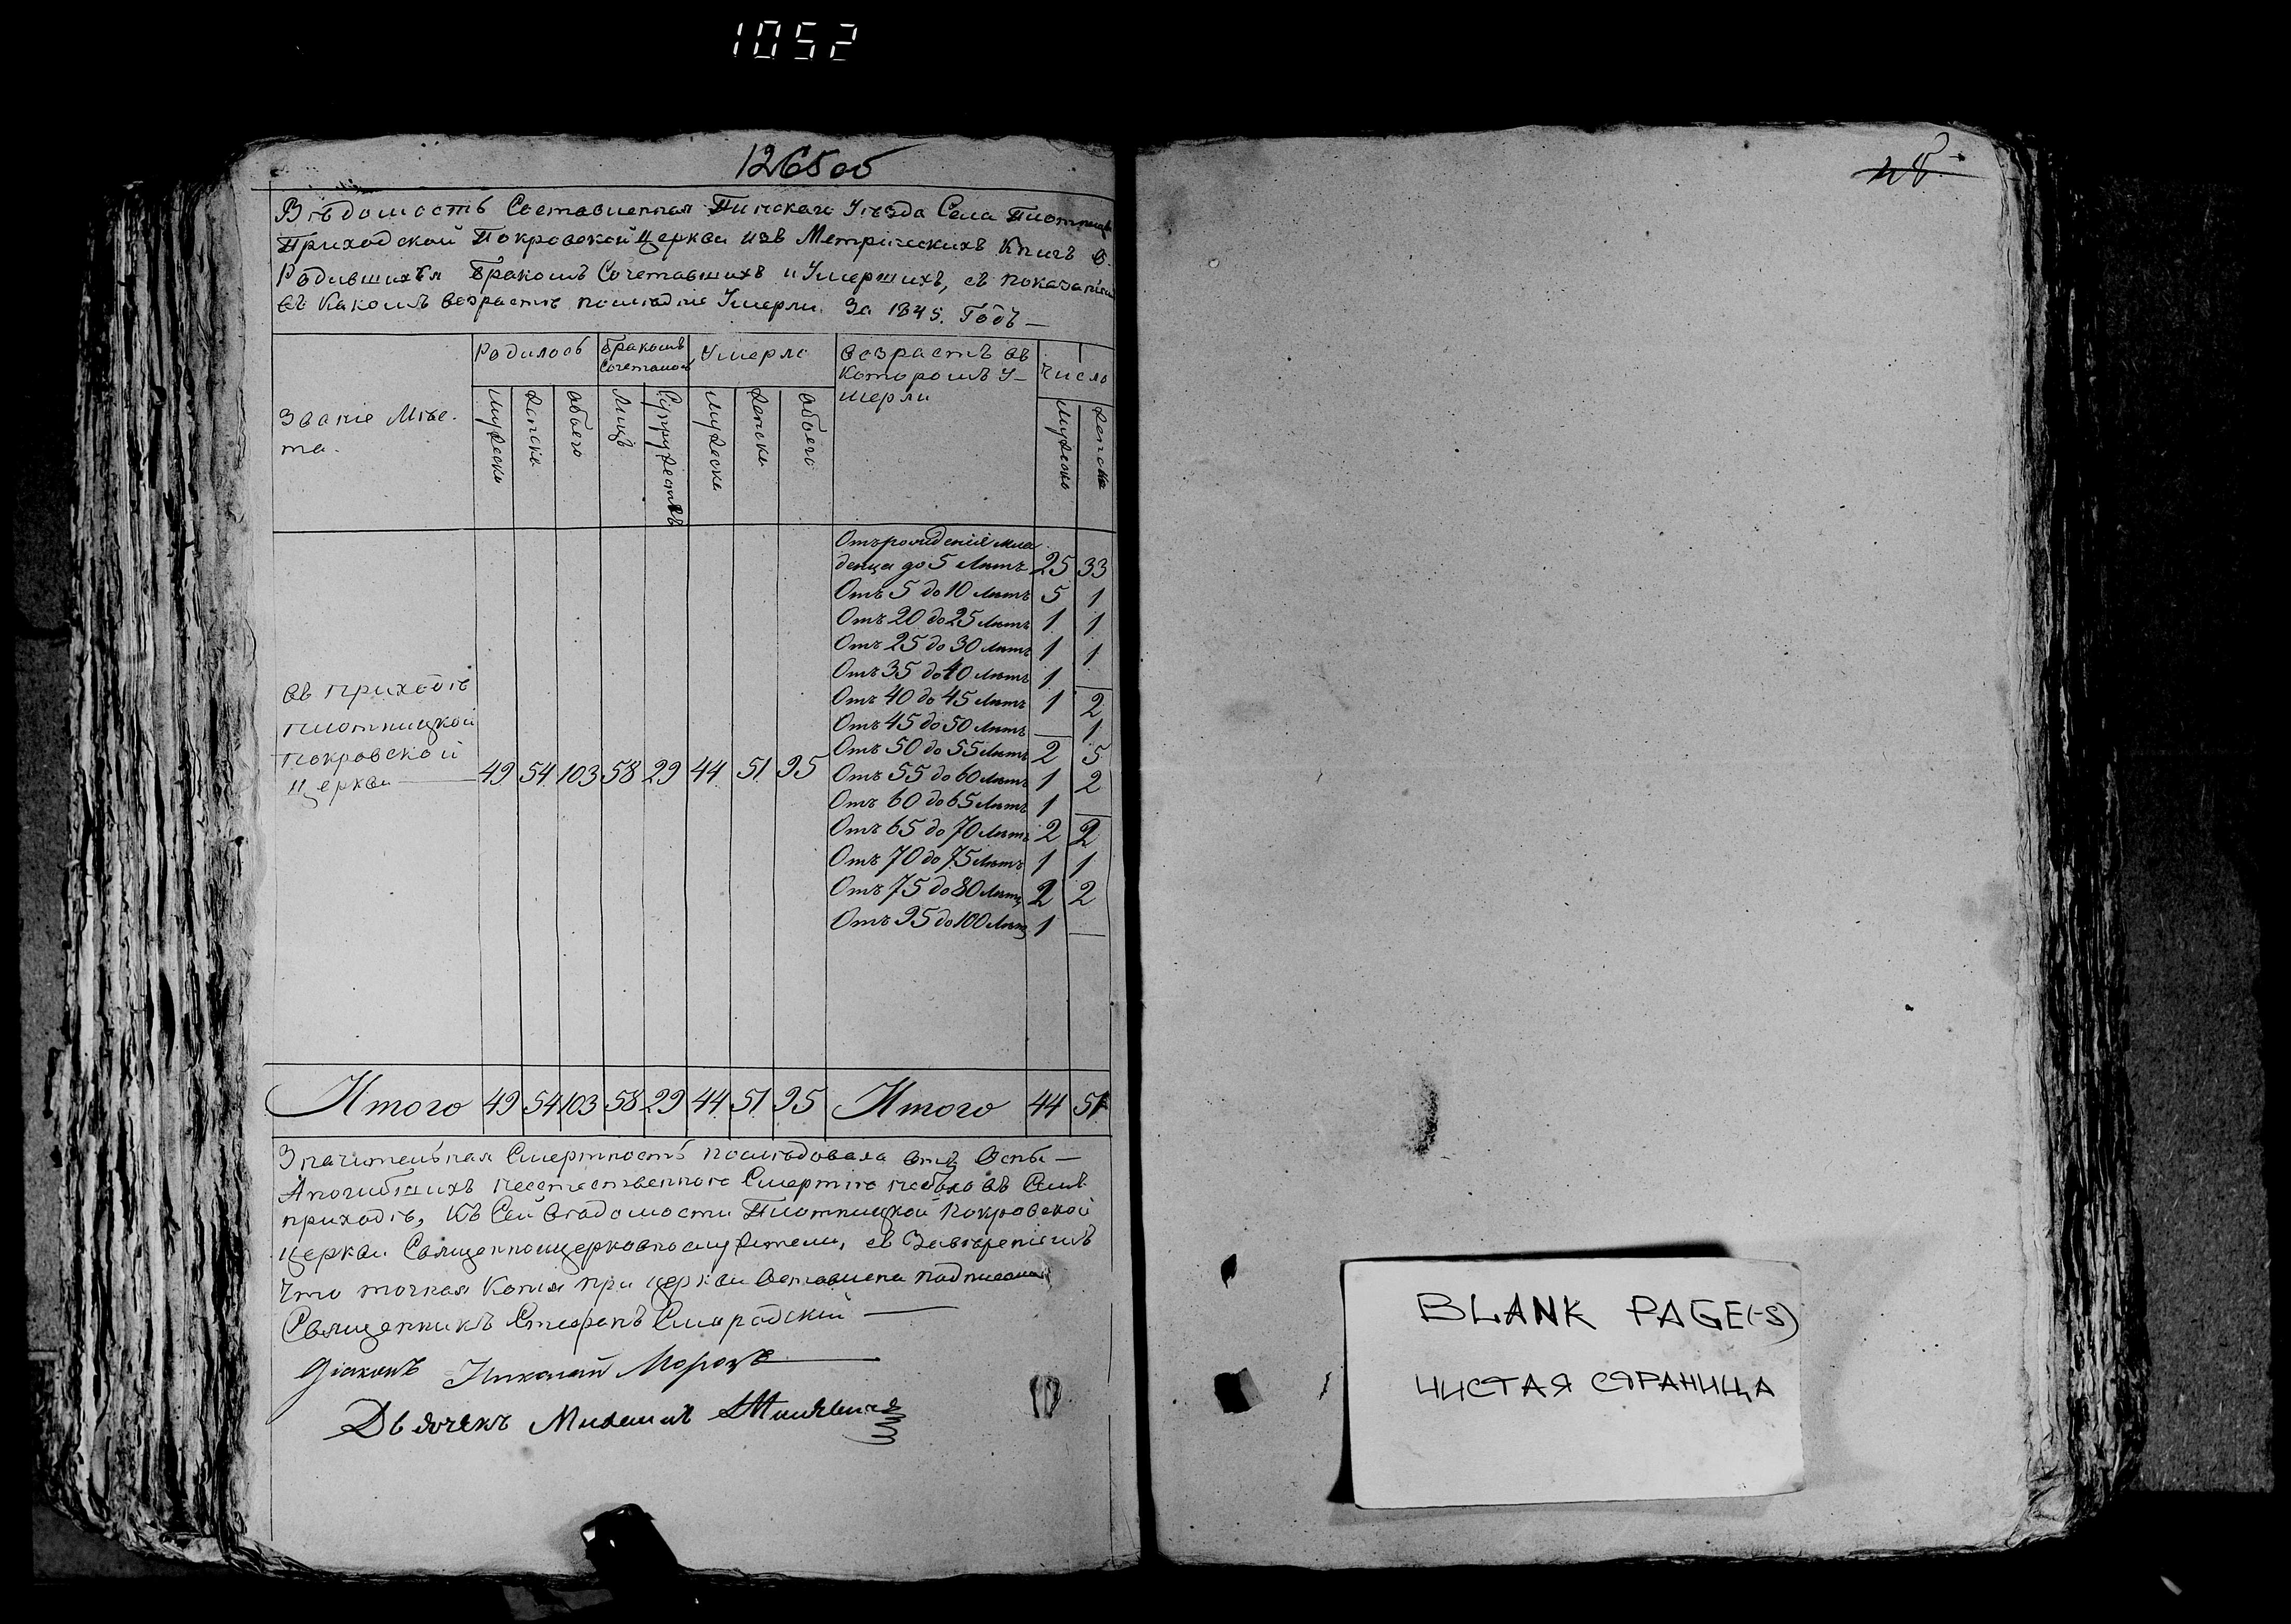 1052
1265 об
Вѣдомость Составленная Пинскаго Уѣзда Села Плотницы
Приходской Покровской Церкви изъ Метрическихъ Книгъ о
Родившихся Бракомъ Сочетавшихъ и Умершихъ, съ показаніемъ
въ Какомъ возрастѣ послѣдніе Умерли. За 1845. Годъ —
Званіе Мѣс-
та.
Родилось
Бракомъ
Сочеталось
Умерло
Возрастъ въ
Которомъ У-
мерли
Число
Мужеска Женска Обоего Лицъ Супружествъ Мужеска Женска Обоего Мужеска Женска
Отъ рожденія мла
денца до 5 Лѣтъ 25 33
Отъ 5 до 10 Лѣтъ 5 1
Отъ 20 до 25 Лѣтъ 1 1
Отъ 25 до 30 Лѣтъ 1 1
Отъ 35 до 40 Лѣтъ 1 —
Отъ 40 до 45 Лѣтъ 1 2
Отъ 45 до 50 Лѣтъ — 1
Отъ 50 до 55 Лѣтъ 2 5
Отъ 55 до 60 Лѣтъ 1 2
Отъ 60 до 65 Лѣтъ 1 —
Отъ 65 до 70 Лѣтъ 2 2
Отъ 70 до 75 Лѣтъ 1 1
Отъ 75 до 80 Лѣтъ 2 2
Отъ 95 до 100 Лѣтъ 1 —
въ приходѣ
Плотницкой
Покровской
Церкви — 49 54 103 58 29 44 51 95
Итого 49 54 103 58 29 44 51 95 Итого 44 51
Значительная Смертность послѣдовала отъ Оспы —
А погибшихъ неестественною Смертію небыло въ Семъ
приходѣ, Къ Сей Вѣдомости Плотницкой Покровской
Церкви Священноицерковнослужители, съ Завѣреніемъ
Что точная Копія при церкви Оставлена подписали
Священникъ Стефанъ Смородскій —
Діаконъ Николай Морозъ —
Дьячекъ Михаилъ
BLANK PAGE(-S)
ЧИСТАЯ СТРАНИЦА